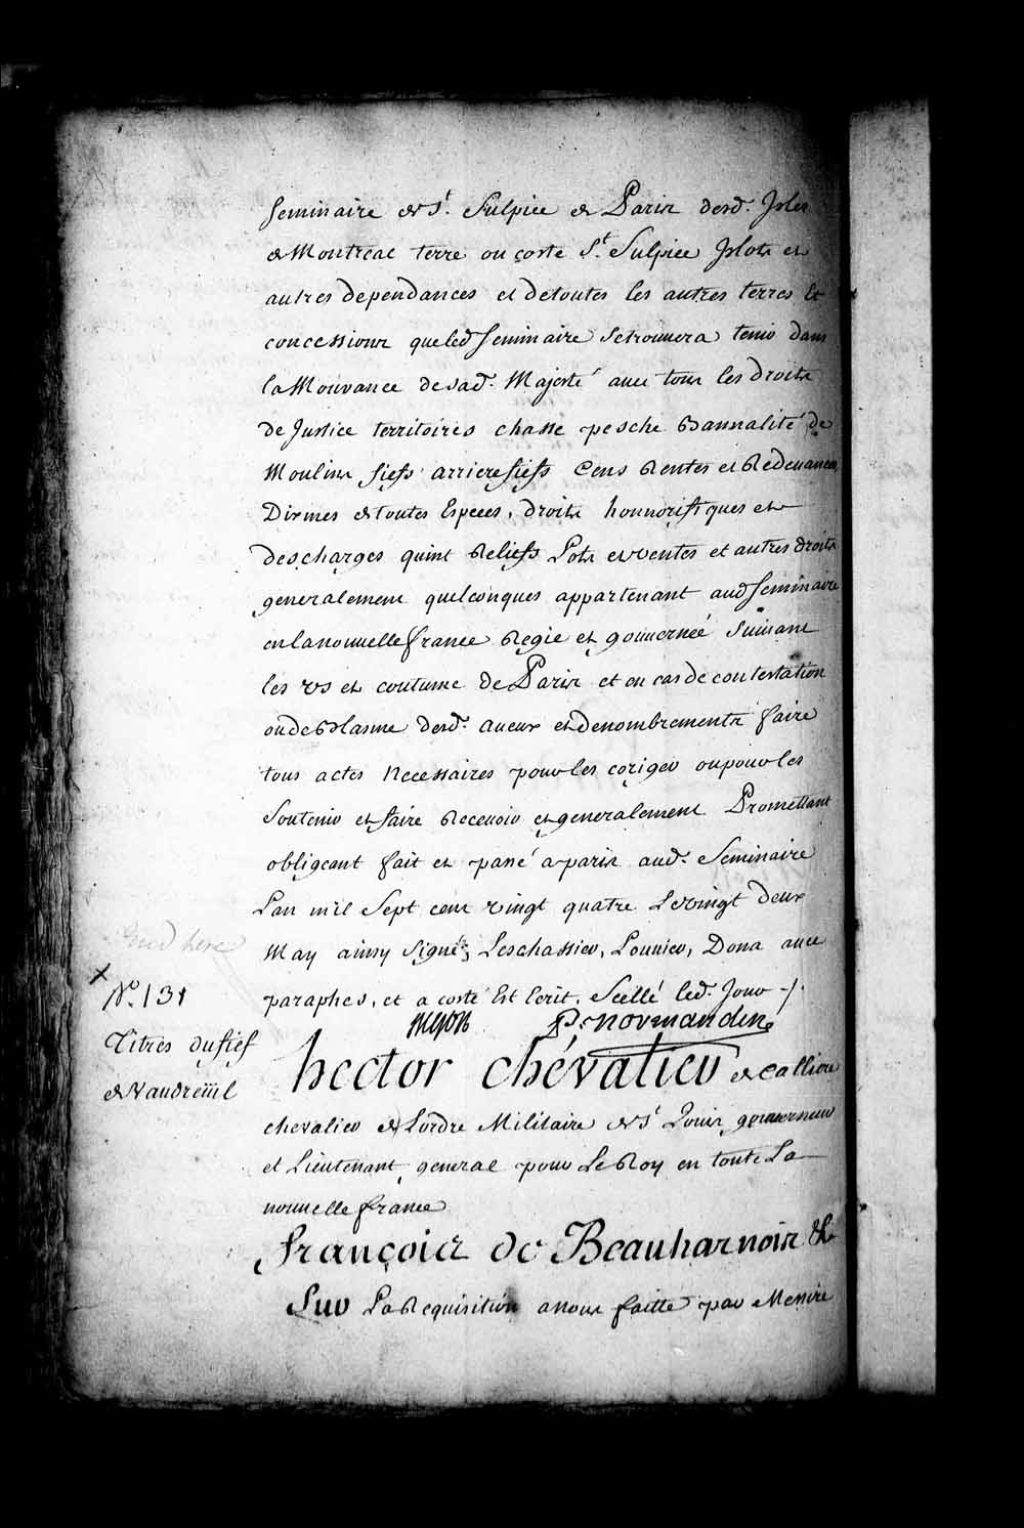 Seminaire de St. Sulpice de Paris desd. Isles
de Montreal terre ou coste St. Sulpice Islots et
autres dependances et detoutes les autres terres et
concessions queled Seminaire setrouuera tenir dans
la Mouvance desad. Majesté auec tous les droits
de Justice territoires chasse pesche Bannalité de
Moulins fiefs arrierefiefs Cens Rentes et Redeuances
Dixmes detoutes Especes, droits honnorifiques et
descharges quint Reliefs Lots et ventes et autres droits
generalement quelconques appartenant aud Seminaire
enlanouuelle france Regie et gouuernée Suiuant
les us et coutume de Paris et en cas de contestation
oude Blasme desd. aueux et denombrements faire
tous actes Necessaires pour les coriger ou pour les
Soutenir et faire Receuoir et generalement Promettant
obligeant fait et passé a paris aud. Seminaire
Lan mil Sept cent vingt quatre Le vingt deux
May ainsy Signé, Leschassier, Lounier, Dona auec
End here
paraphes, et a costé Est Ecrit, Scellé led. Jour
P. Normandin
N°. 131
Titres du fief
de Vaudreüil
hector chévalier de Calliere
chevalier de Lordre Militaire de St Louis gouuerneur
et Lieutenant general pour Le Roy en toute La
nouuelle france
françois de Beauharnois &c
Sur La Requisition a nous faitte par Messire